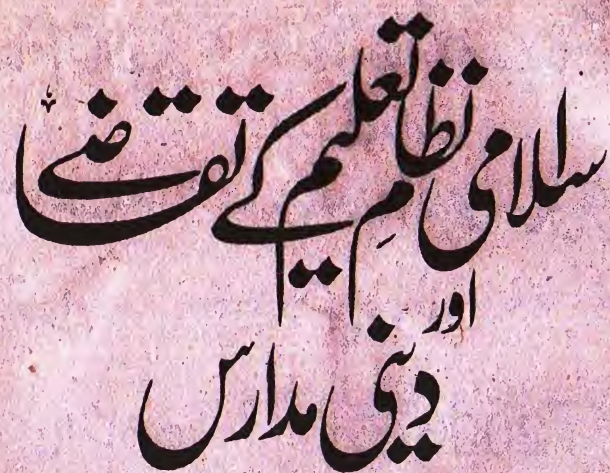 اسلامی نظامِ تعلیم کے تقاضے
اور
دینی مدارس